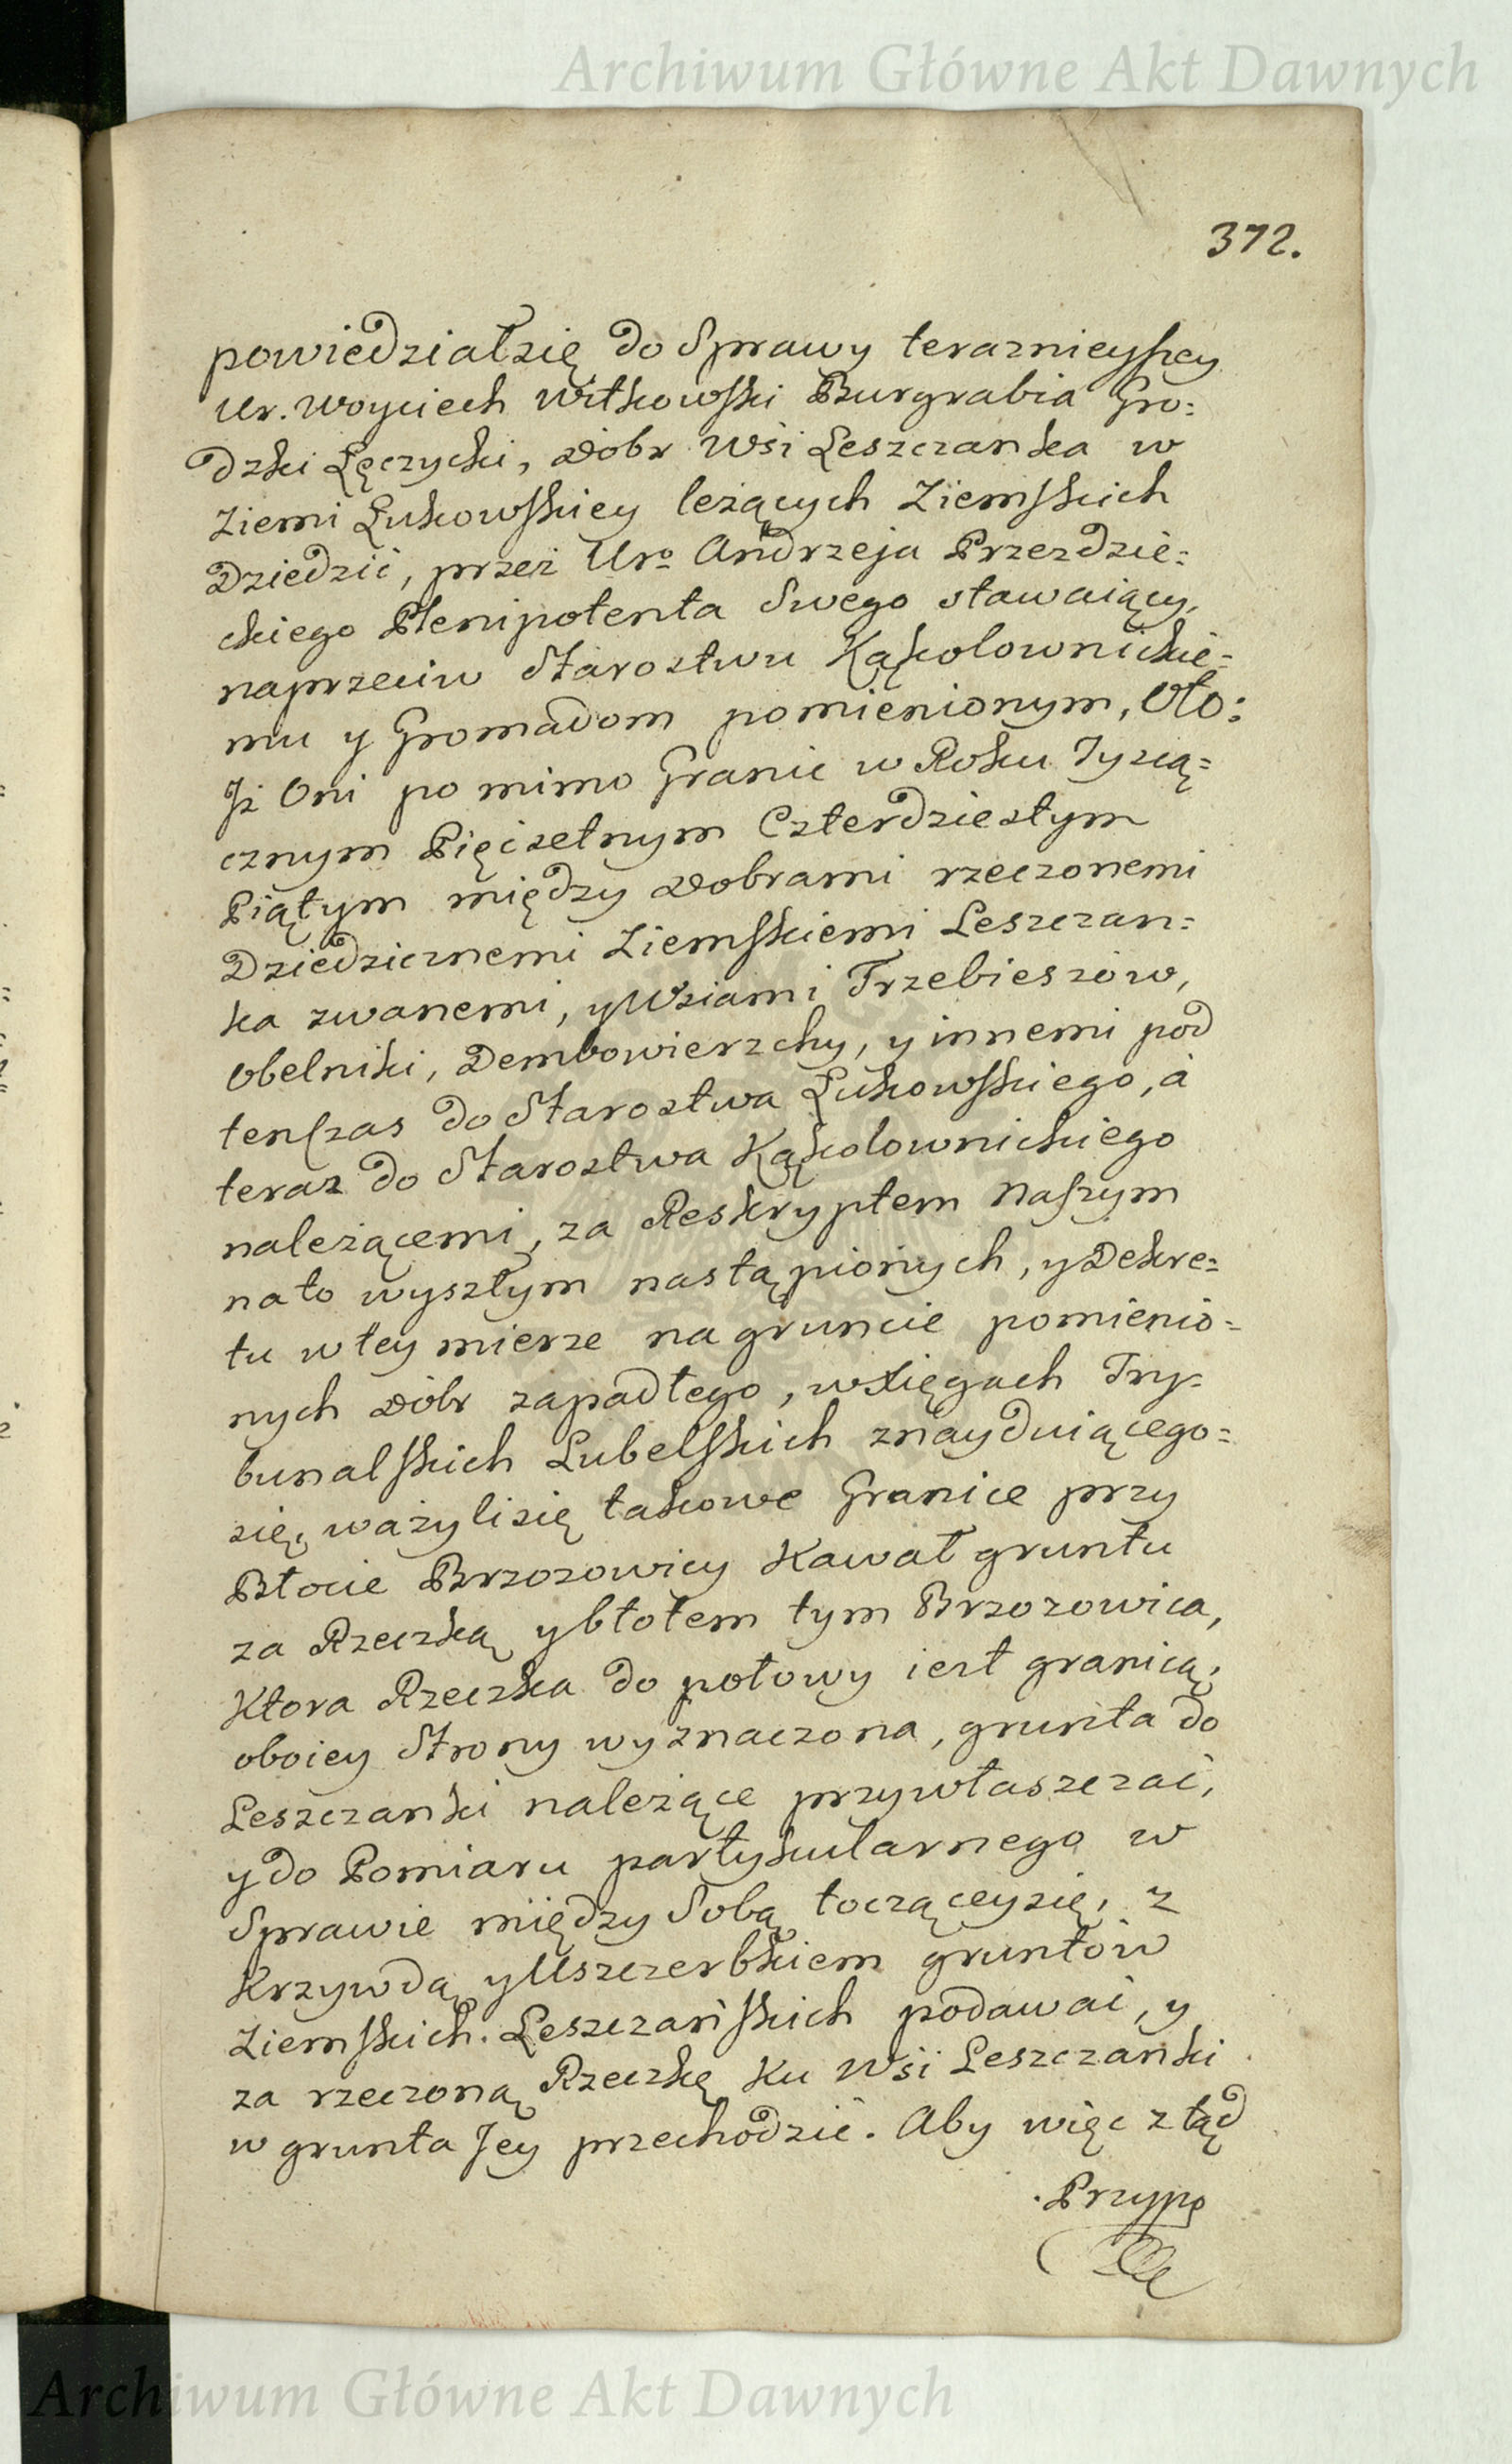 Archiwum Główne Akt Dawnych
372.
powiedziałsię do Sprawy teraznieyszey
Ur. Woyciech Witkowski Burgrabia Gro:
dzki Łęczycki, Dóbr Wsi Leszczanka w
Ziemi Łukowskiey leżących Ziemskich
Dziedzic, przez Uro Andrzeja Przezdzie:
ckiego Plenipotenta Swego stawaiący,
naprzeciw Starostwu Kąkolownickie:
mu y Gromadom pomienionym, Oto:
Jż Oni po mimo Granic w Roku Tysią=
cznym Pięćsetnym Czterdziestym
Piątym między Dobrami rzeczonemi
Dziedzicznemi Ziemskiemi Leszczan:
ka zwanemi, y Wsiami Trzebieszów,
Obelniki, Dembowierzchy, y innemi pod
tenczas do Starostwa Łukowskiego, á
teraz do Starostwa Kąkolownickiego
należącemi, za Reskryptem Naszym
nato wyszłym nastąpionych, y Dekre=
tu wtey mierze na gruncie pomienio=
nych Dóbr zapadłego, w Xięgach Try=
bunalskich Lubelskich znayduiącego=
się, ważylisię takowe Granice przy
Błocie Brzozowicy Kawał gruntu
za Rzeczką y błotem tym Brzozowica,
Ktora Rzeczka do połowy iest granicą,
oboiey Strony wyznaczona, grunta do
Leszczanki należące przywłaszczać,
y do Pomiaru partykularnego w
Sprawie między Sobą toczącey się, z
Krzywdą y Uszczerbkiem gruntów
Ziemskich. Leszczańskich podawać, y
za rzeczoną Rzeczkę Ku Wsi Leszczanki
w grunta Jey przechodzić. Aby więc ztąd
Przypo
Archiwum Główne Akt Dawnych